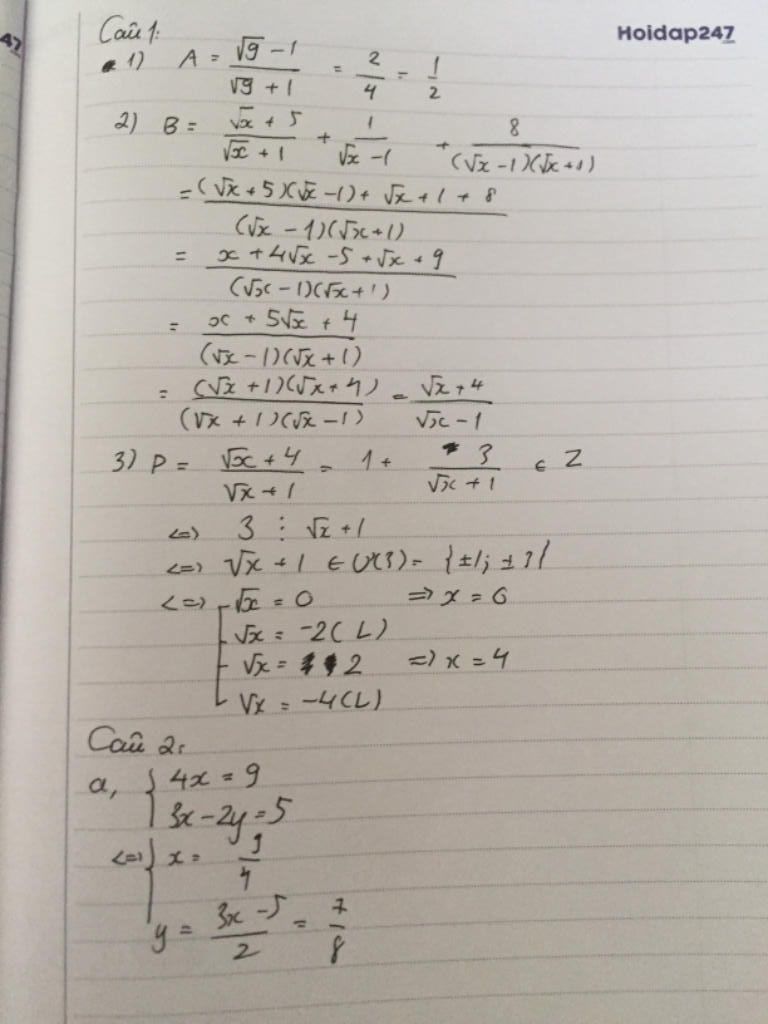 47
Hoidap247
Câu 1:
1) A = (√9 - 1)/(√9 + 1) = 2/4 = 1/2
2) B = (√x + 5)/(√x + 1) + 1/(√x - 1) + 8/((√x - 1)(√x + 1))
= ((√x + 5)(√x - 1) + √x + 1 + 8)/((√x - 1)(√x + 1))
= (x + 4√x - 5 + √x + 9)/((√x - 1)(√x + 1))
= (x + 5√x + 4)/((√x - 1)(√x + 1))
= ((√x + 1)(√x + 4))/((√x + 1)(√x - 1)) = (√x + 4)/(√x - 1)
3) P = (√x + 4)/(√x + 1) = 1 + 3/(√x + 1) ∈ Z
<=> 3 ⋮ √x + 1
<=> √x + 1 ∈ Ư(3) = {±1; ±3}
<=> [ √x = 0 => x = 0
√x = -2 (L)
√x = 2 => x = 4
√x = -4 (L)
Câu 2:
a, { 4x = 9
3x - 2y = 5
<=> { x = 9/4
y = (3x - 5)/2 = 7/8